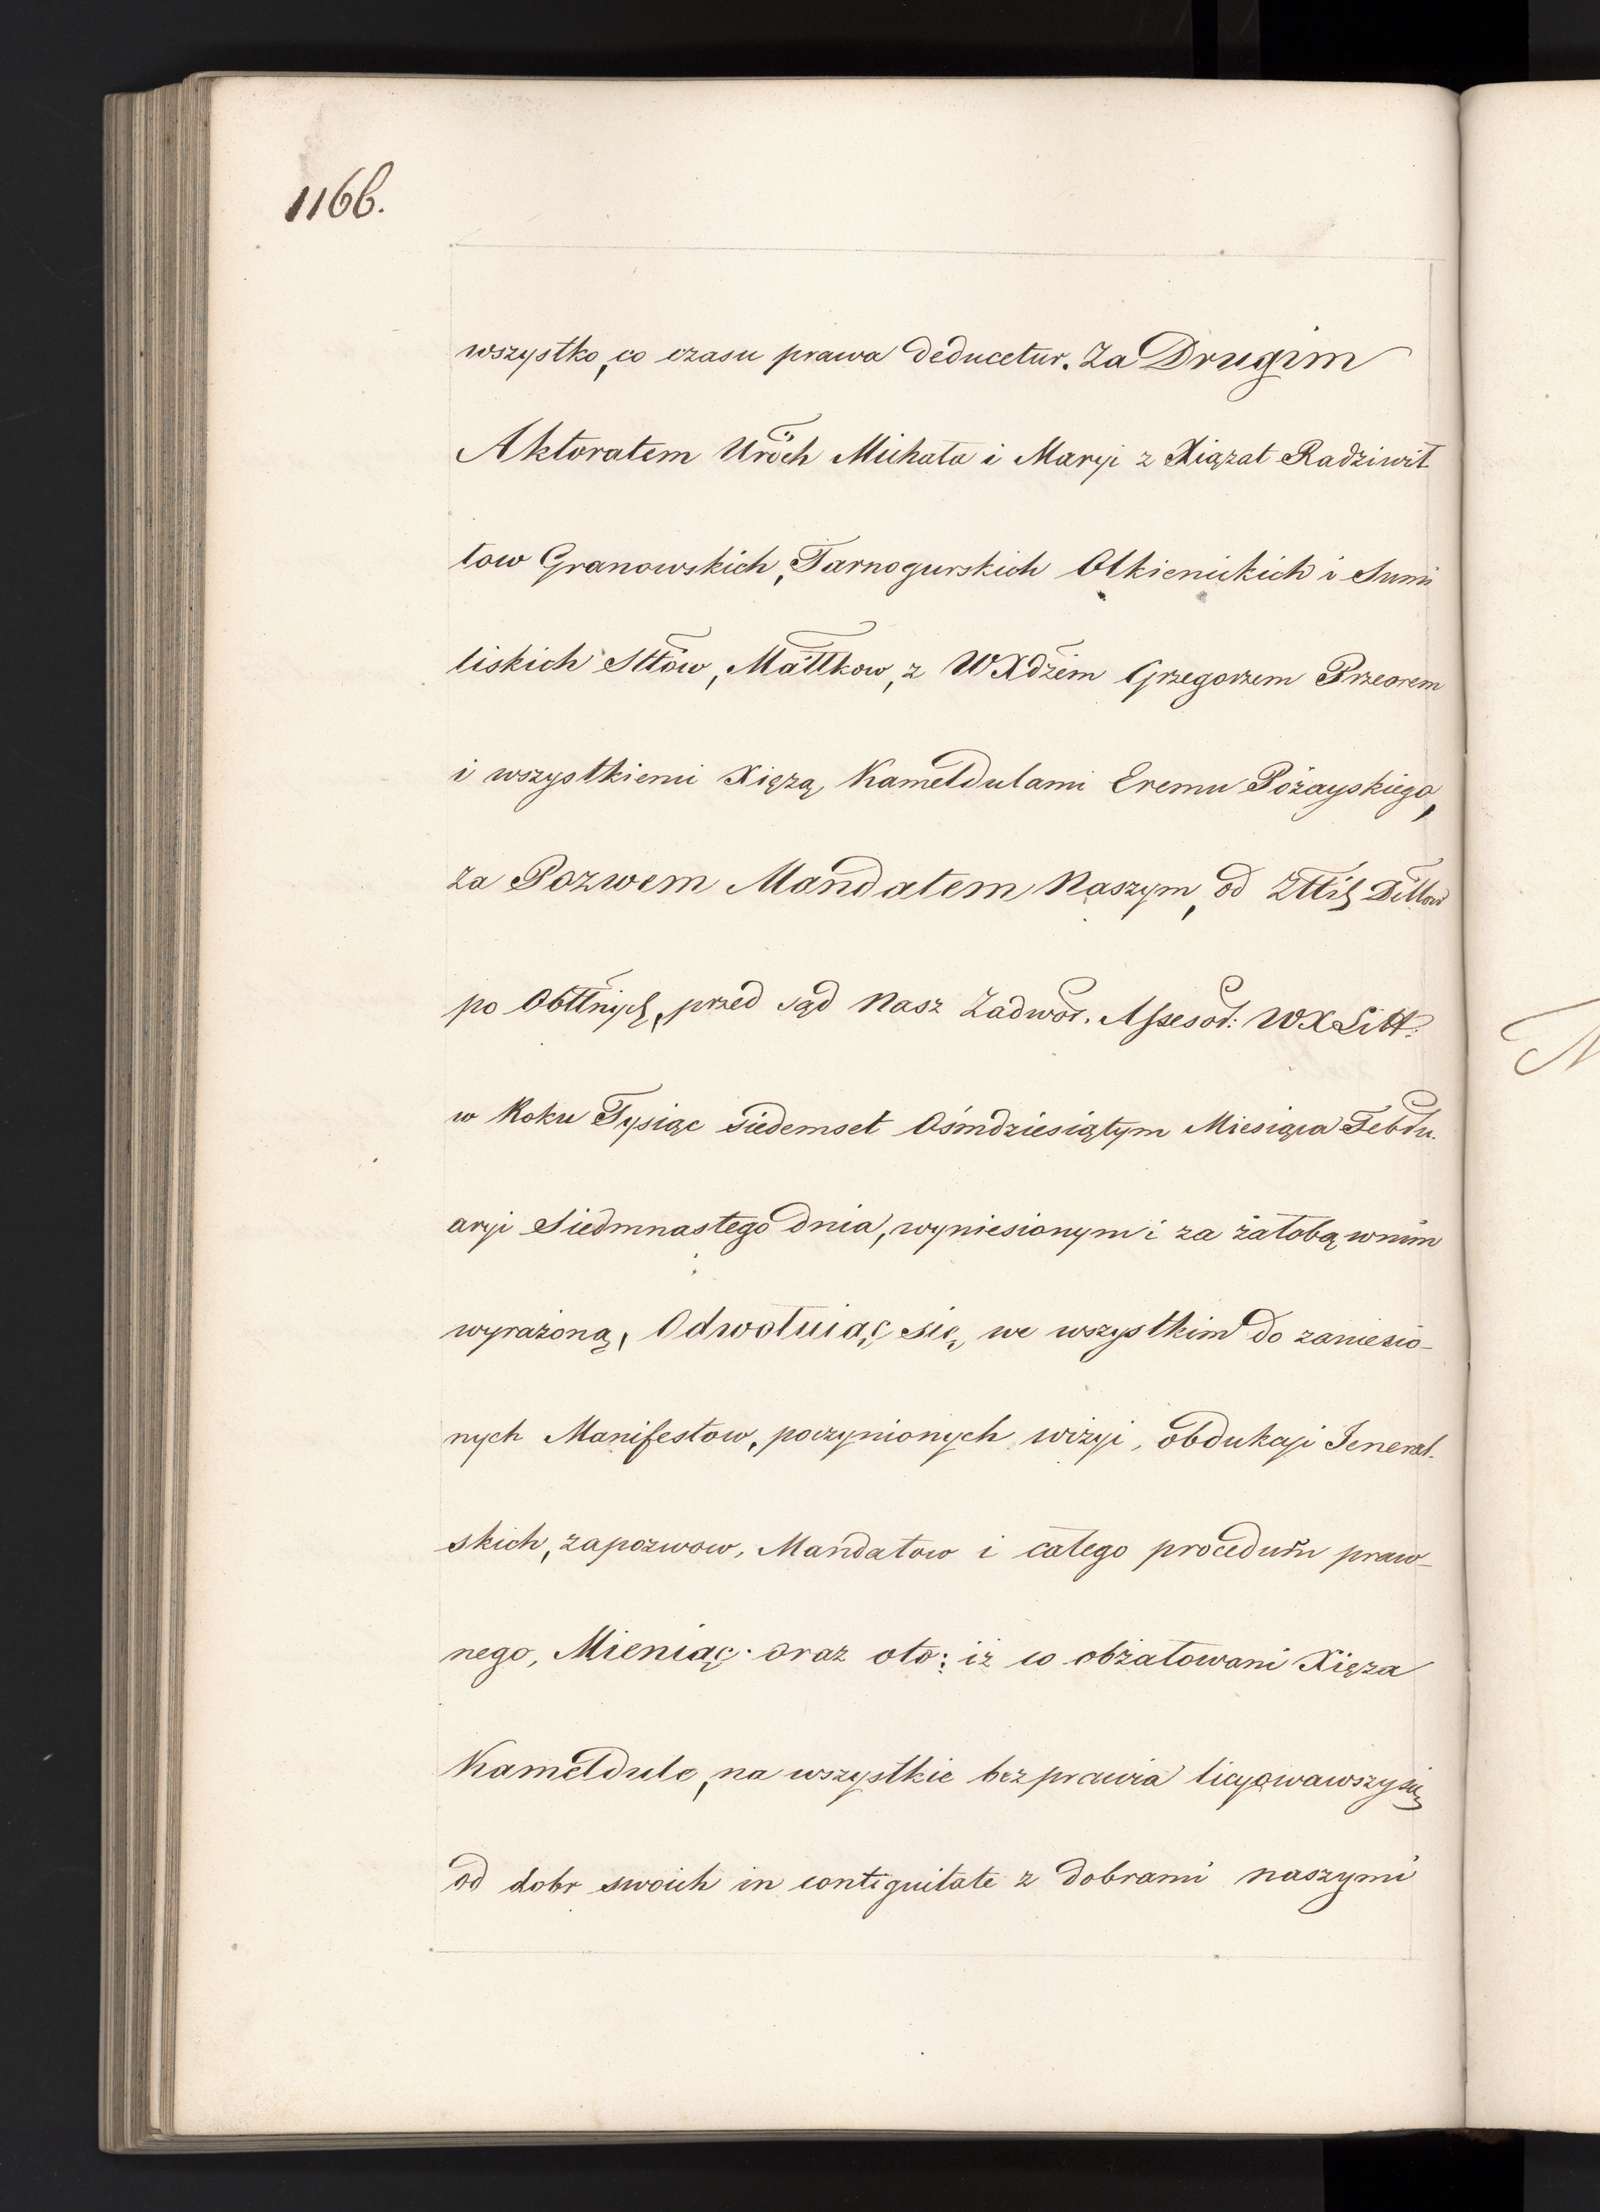 1166.
wszystko, co czasu prawa deducetur. Za Drugim
Aktoratem Uröch Michała i Maryi z Xiążat Radziwił
łow Granowskich, Tarnogurskich Olkienickich i Sumi
liskich Sttów, Máttkow, z WXdżem Grzegorzem Przeorem
i wszystkiemi Xiężą Kameldulami Eremu Pożayskiego,
za Pozwem Mandatem Naszym, od
po przed sąd Nasz Zadwor. Assesor: WXLitt:
w Roku Tysiąc siedemset Ośmdziesiątym Miesiąca Febru.
aryi Siedmnastego dnia, wyniesionym i za żałobą wnim
wyrażoną, Odwołuiąc się, we wszystkim do zaniesio-
nych Manifestow, poczynionych wizyi, obdukcyi Jeneral.
skich, zapozwow, Mandatow i całego procederu praw-
nego, Mieniąc oraz oto: iż co obżałowani Xięża
Kameldule, na wszystkie bezprawia licyowawszy się
od dobr swoich in contiguitate z dobrami naszymi
N